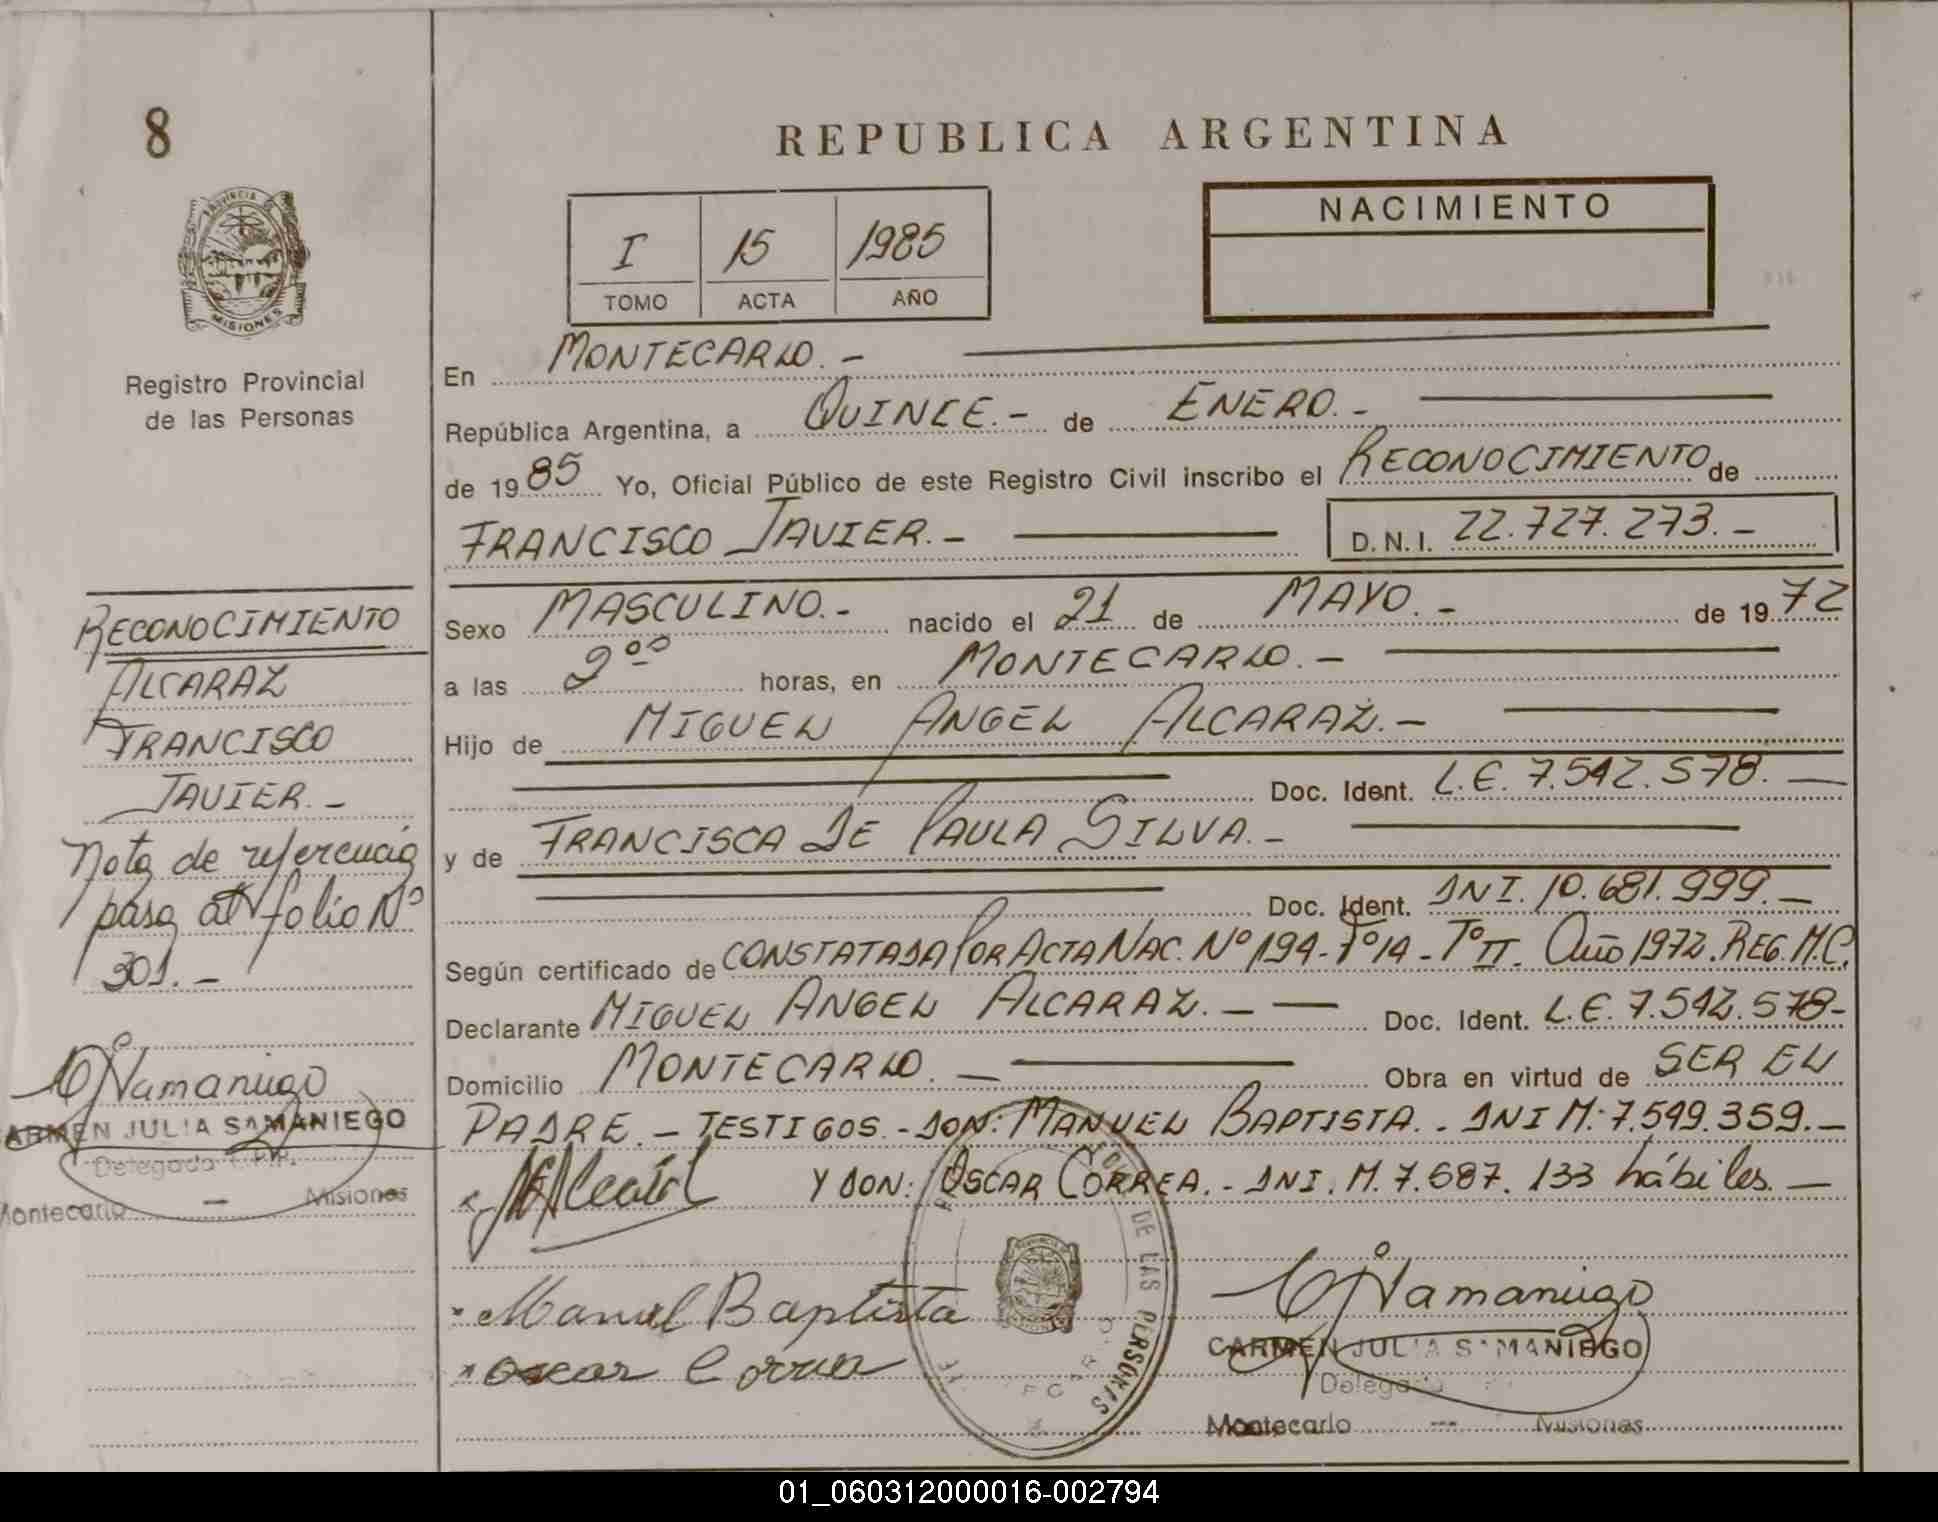 8
REPUBLICA ARGENTINA
PROVINCIA
MISIONES
Registro Provincial
de las Personas
I 15 1985
TOMO ACTA AÑO
NACIMIENTO
En MONTECARLO.-
República Argentina, a QUINCE.- de ENERO.-
de 1985 Yo, Oficial Público de este Registro Civil inscribo el RECONOCIMIENTO de
FRANCISCO JAVIER.- D.N.I. 22.727.273.-
RECONOCIMIENTO
ALCARAZ
FRANCISCO
JAVIER.-
Nota de referencia
pasa al folio Nº
301.-
CARMEN JULIA SAMANIEGO
Delegada
Montecarlo - Misiones
Sexo MASCULINO.- nacido el 21 de MAYO.- de 1972
a las 2⁰⁰ horas, en MONTECARLO.-
Hijo de MIGUEL ANGEL ALCARAZ.-
Doc. Ident. L.E. 7.542.578.-
y de FRANCISCA DE PAULA SILVA.-
Doc. Ident. DNI. 10.681.999.-
Según certificado de CONSTATADA POR ACTA NAC. Nº 194-Fº 14-Tº II. Año 1972. REG. M.C.
Declarante MIGUEL ANGEL ALCARAZ.- Doc. Ident. L.E. 7.542.578-
Domicilio MONTECARLO.- Obra en virtud de SER EL
PADRE.- TESTIGOS.- DON: MANUEL BAPTISTA.- DNI M: 7.549.359.-
Y DON: OSCAR CORREA.- DNI. M. 7.687.133 hábiles.-
Manuel Baptista
Oscar Correa
DE LAS PERSONAS
CARMEN JULIA SAMANIEGO
Delegada
Montecarlo --- Misiones
01_060312000016-002794